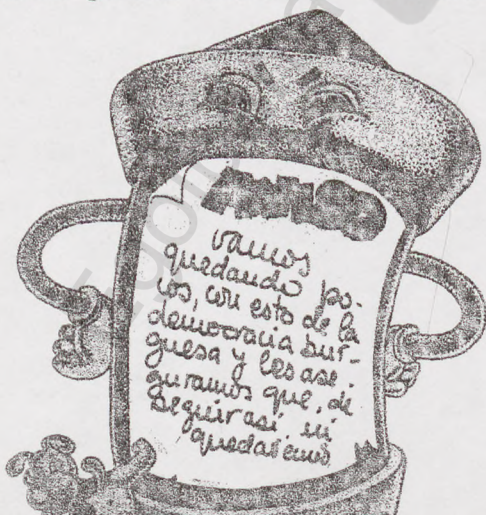 vamos
quedando po-
cos, con esto de la
democracia bur-
guesa y les ase-
guramos que, de
seguir así ni
quedaremos